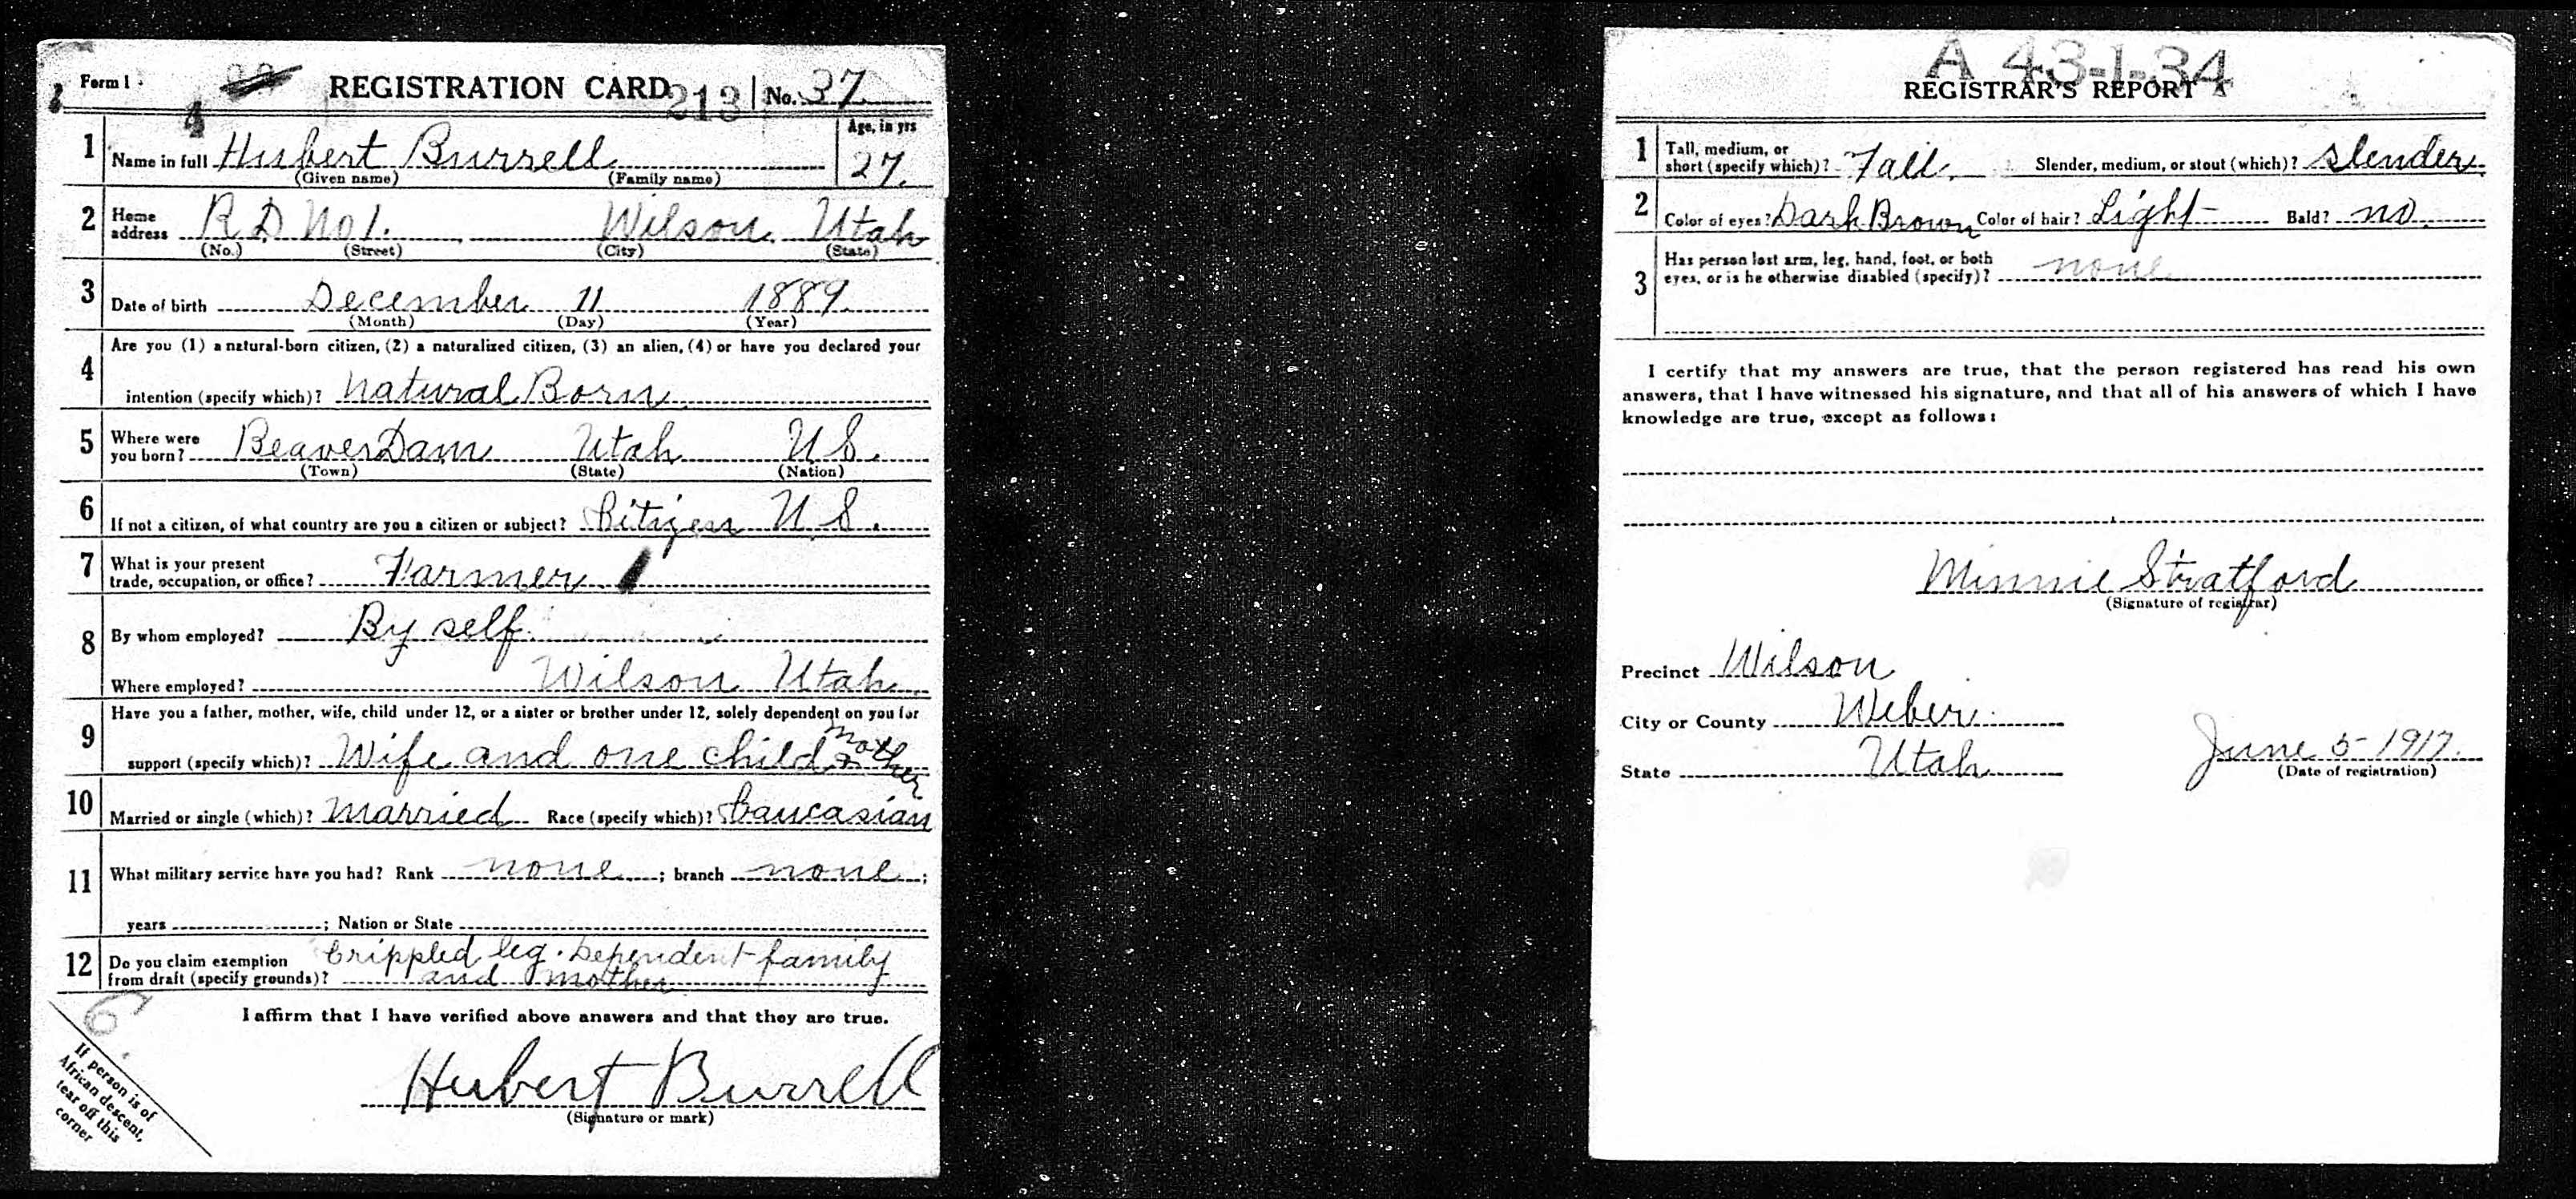 Form 1
REGISTRATION CARD 213 No. 37
4
Age, in yrs
1 Name in full Hubert Burrell 27.
(Given name) (Family name)
2 Home address R D No 1. Wilson Utah
(No.) (Street) (City) (State)
3 Date of birth December 11 1889
(Month) (Day) (Year)
4 Are you (1) a natural-born citizen, (2) a naturalized citizen, (3) an alien, (4) or have you declared your
intention (specify which)? Natural Born
5 Where were you born? Beaver Dam Utah U S.
(Town) (State) (Nation)
6 If not a citizen, of what country are you a citizen or subject? Citizen U S.
7 What is your present
trade, occupation, or office? Farmer
8 By whom employed? By self
Where employed? Wilson Utah
9 Have you a father, mother, wife, child under 12, or a sister or brother under 12, solely dependent on you for
support (specify which)? Wife and one child & mother
10 Married or single (which)? Married Race (specify which)? Caucasian
11 What military service have you had? Rank none ; branch none ;
years ; Nation or State
12 Do you claim exemption Crippled leg. Dependent family
from draft (specify grounds)? and mother
I affirm that I have verified above answers and that they are true.
Hubert Burrell
(Signature or mark)
6
If person is of
African descent,
tear off this
corner
A 43-1-34
REGISTRAR'S REPORT
1 Tall, medium, or
short (specify which)? Tall. Slender, medium, or stout (which)? slender.
2 Color of eyes? Dark Brown Color of hair? Light Bald? no
3 Has person lost arm, leg, hand, foot, or both
eyes, or is he otherwise disabled (specify)? none
I certify that my answers are true, that the person registered has read his own
answers, that I have witnessed his signature, and that all of his answers of which I have
knowledge are true, except as follows:
Minnie Stratford
(Signature of registrar)
Precinct Wilson
City or County Weber
State Utah June 5 1917.
(Date of registration)